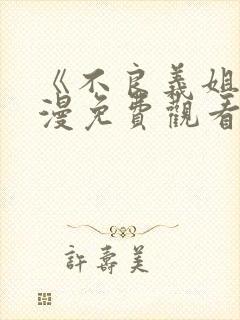 《不良義姐
漫免費觀看
許壽美